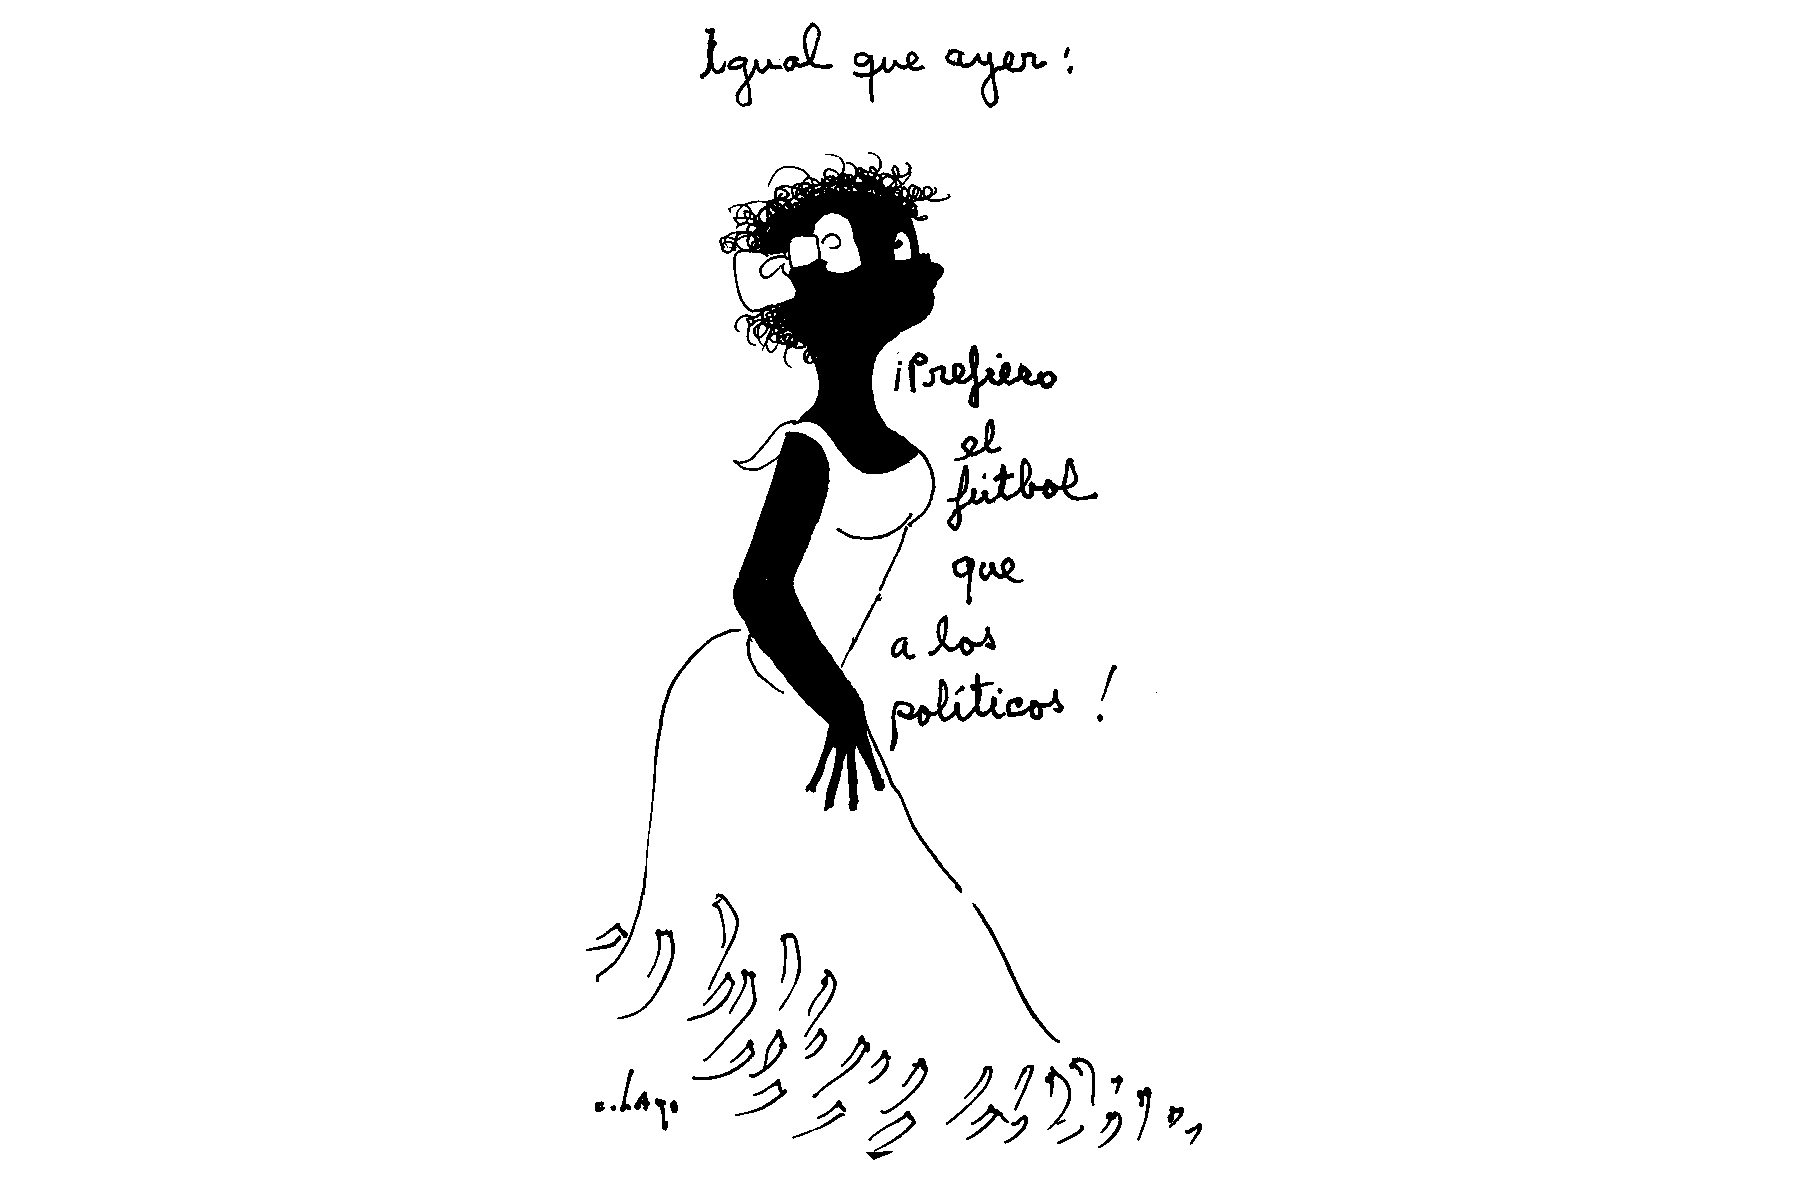 Igual que ayer:
¡Prefiero
el
fútbol
que
a los
políticos!
e.LAgo